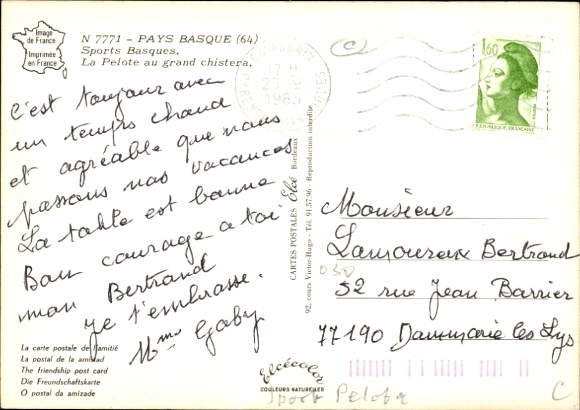 Image
de France
Imprimée
en France
N 7771 - PAYS BASQUE (64)
Sports Basques.
La Pelote au grand chistera.
1985
1,60
REPUBLIQUE FRANÇAISE
C'est toujour avec
un temps chaud
et agréable que nous
passons nos vacances
La table est bonne
Bon courage a toi
mon Bertrand
Je t'embrasse.
Mme Gaby
CARTES POSTALES Elcé Bordeaux
92, cours Victor-Hugo - Tél. 91.57.96 - Reproduction interdite
Monsieur
Lamoureux Bertrand
52 rue Jean Barrier
77190 Dammarie les Lys
La carte postale de l'amitié
La postal de la amistad
The friendship post card
Die Freundschaftskarte
O postal da amizade
Elcécolor
COULEURS NATURELLES
Sport Pelota
C